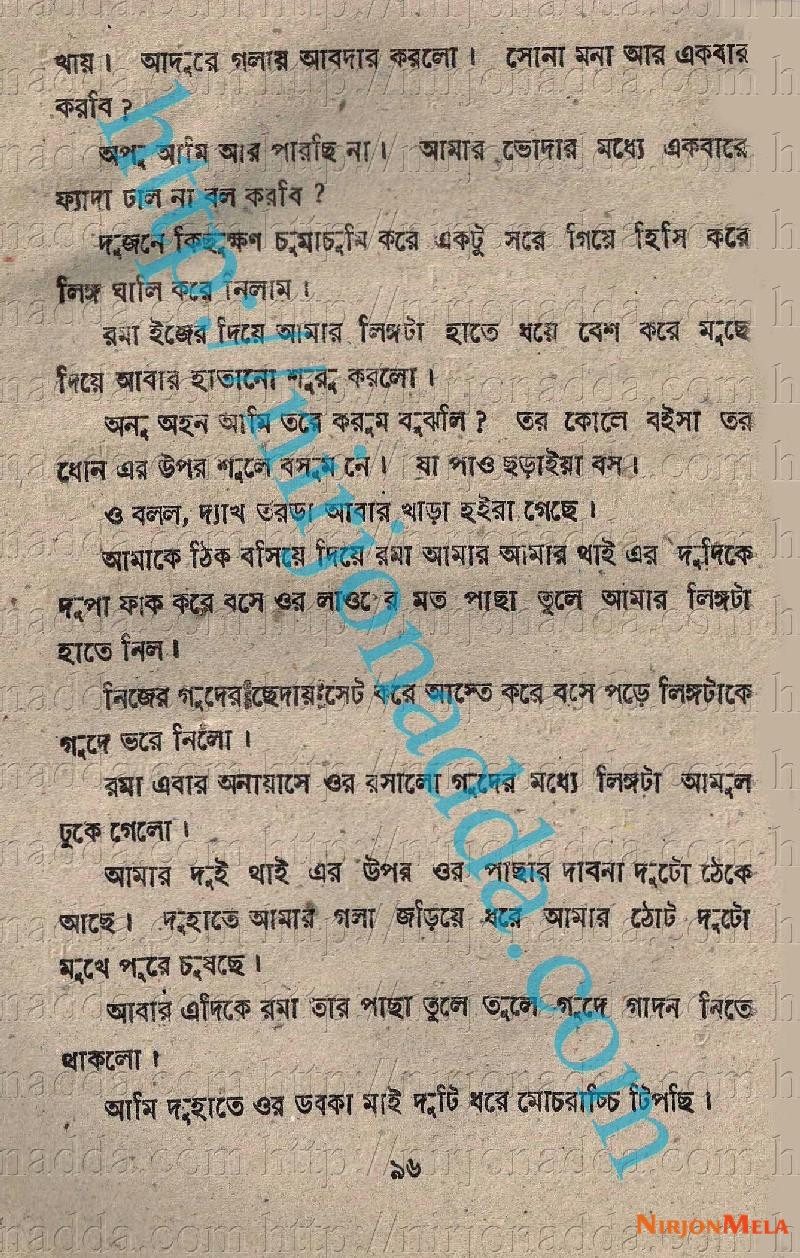 থায়। আদুরে গলায় আবদার করলো। সোনা মনা আর একবার
করবি?
অপু আমি আর পারছি না। আমার ভোদার মধ্যে একবারে
ফ্যাদা ঢাল না বল করবি?
দুজনে কিছুক্ষণ চুমাচুমি করে একটু সরে গিয়ে হিসি করে
লিঙ্গ খালি করে নিলাম।
রমা ইজের দিয়ে আমার লিঙ্গটা হাতে ধয়ে বেশ করে মুছে
দিয়ে আবার হাতানো শুরু করলো।
অনু অহন আমি তরে করুম বুঝলি? তর কোলে বইসা তর
ধোন এর উপর শুলে বসুম নে। যা পাও ছড়াইয়া বস।
ও বলল, দ্যাখ তরডা আবার খাড়া হইরা গেছে।
আমাকে ঠিক বসিয়ে দিয়ে রমা আমার আমার থাই এর দুদিকে
দুপা ফাক করে বসে ওর লাওয়ের মত পাছা তুলে আমার লিঙ্গটা
হাতে নিল।
নিজের গুদের ছেদায় সেট করে আস্তে করে বসে পড়ে লিঙ্গটাকে
গুদে ভরে নিলো।
রমা এবার অনায়াসে ওর রসালো গুদের মধ্যে লিঙ্গটা আমুল
ঢুকে গেলো।
আমার দুই থাই এর উপর ওর পাছার দাবনা দুটো ঠেকে
আছে। দুহাতে আমার গলা জড়িয়ে ধরে আমার ঠোট দুটো
মুখে পুরে চুষছে।
আবার এদিকে রমা তার পাছা তুলে তুলে গুদে গাদন নিতে
থাকলো।
আমি দুহাতে ওর ডবকা মাই দুটি ধরে মোচরাচ্চি টিপছি।
৯৬
http://nirjonadda.com
NIRJONMELA